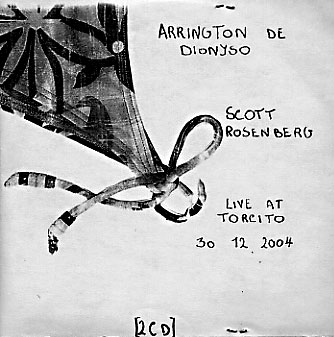 ARRINGTON DE
DIONYSO
SCOTT
ROSENBERG
LIVE AT
TORCITO
30 12 2004
[2CD]